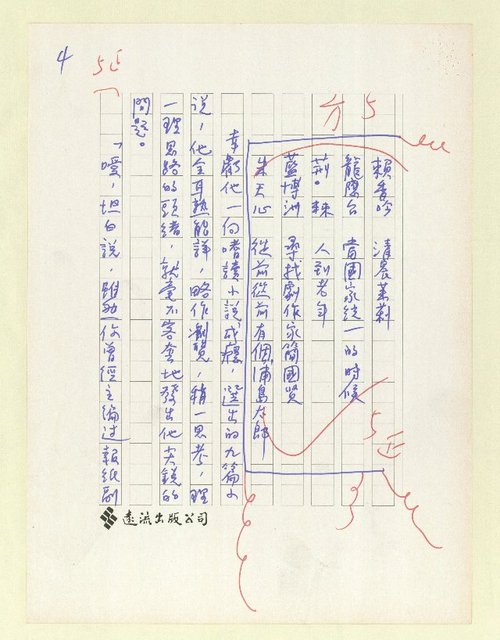 4
5
賴香吟 清晨茉莉
龍應台 當國家統一的時候
荊棘 人到老年
藍博洲 尋找劇作家簡國賢
朱天心 從前從前有個浦島太郎
幸虧他一向嗜讀小說成癮,選出的九篇小
說,他全耳熟能詳,略作瀏覽,稍一思考,理
一理思路的頭緒,就毫不客套地發出他尖銳的
問題。
「噯,坦白說,雖然你曾經主編過報紙副
遠流出版公司